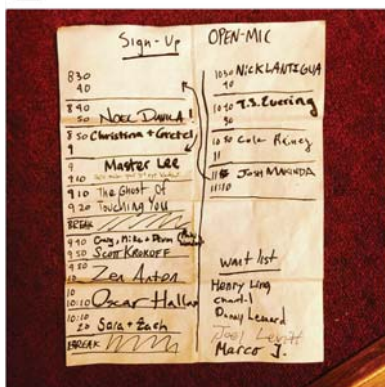 Sign-Up
OPEN-MIC
8 30
40
8 40
50 NOEL DAVILA!
8 50 Christina + Gretel
9
9 Master Lee
9 10
9 10 The Ghost Of
9 20 Touching You
BREAK
9 40 Craig, Mike + Devin
9 50 SCOTT KROKOFF
9 50
10 Zen Anton
10
10:10 Oscar Hallas
10:10
20 Sara + Zach
BREAK
10 30 NICK LANTIGUA
40
10 40 T.S. Euering
50
10 50 Cole Rainey
11
11 JOSH MAKINDA
11:10
wait list
Henry Ling
Danny Leonard
Joel Levitt
Marco J.